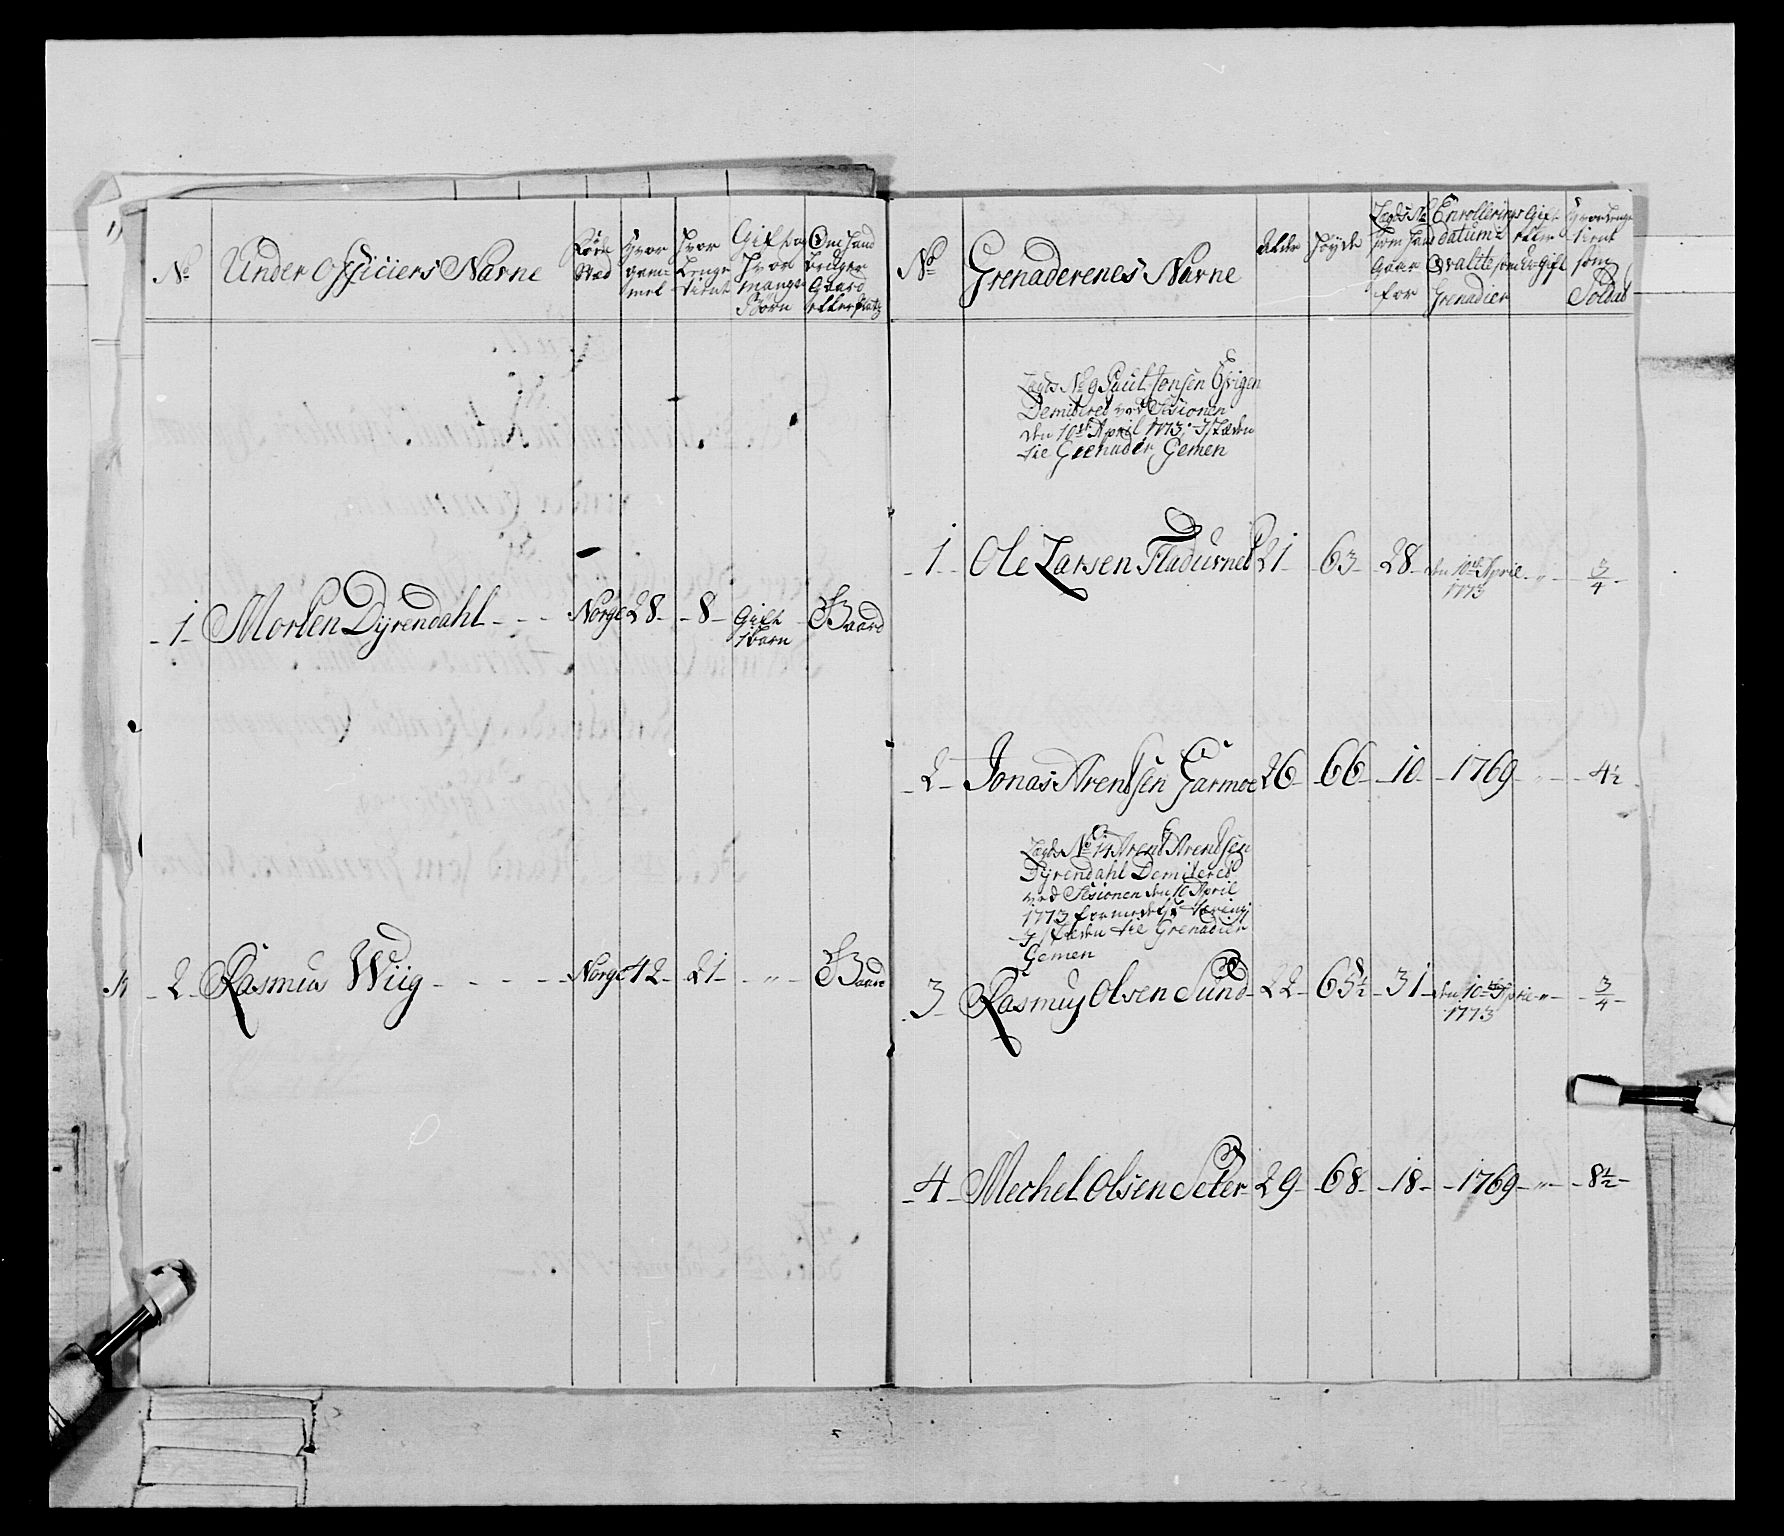 No Under Officiers Navne
Føde Stæd
Hvor gam- mel
Hvor Lenge tient
Gift og Hvor mange Børn
Om hand bruger Gaard eller platz
1 Morten Dyrendahl Norge 28 8 Gift 1 barn Gaard
2 Rasmus Wiig Norge 42 21 " Gaard
No Grenaderenes Navne
Alder
Høyde
Legds No som hand Gaar for
Enrollerings datum
som Grenadier
Gift eller U-Gift
Hvor lenge tient som Soldat
Legds No 9 Paul Jonsen
Demiteret ved Sesionen
den 10de April 1773, I stæden
til Grenader Gemen
1 Ole Larsen Fladurnes 21 63 28 den 10de April 1773 " 3/4
2 Jonas Arentsen Garmoe 26 66 10 1769 " 4 1/2
Legds No Arent Arentsen
Dyrendahl Demiteret
ved Sesionen den 10 April
1773 formedelst
I stæden til Grenadier
Gemen
3 Rasmus Olsen Sund 22 65 1/2 31 den 10de April 1773 " 3/4
4 Mechel Olsen Seter 29 68 18 1769 " 8 1/2